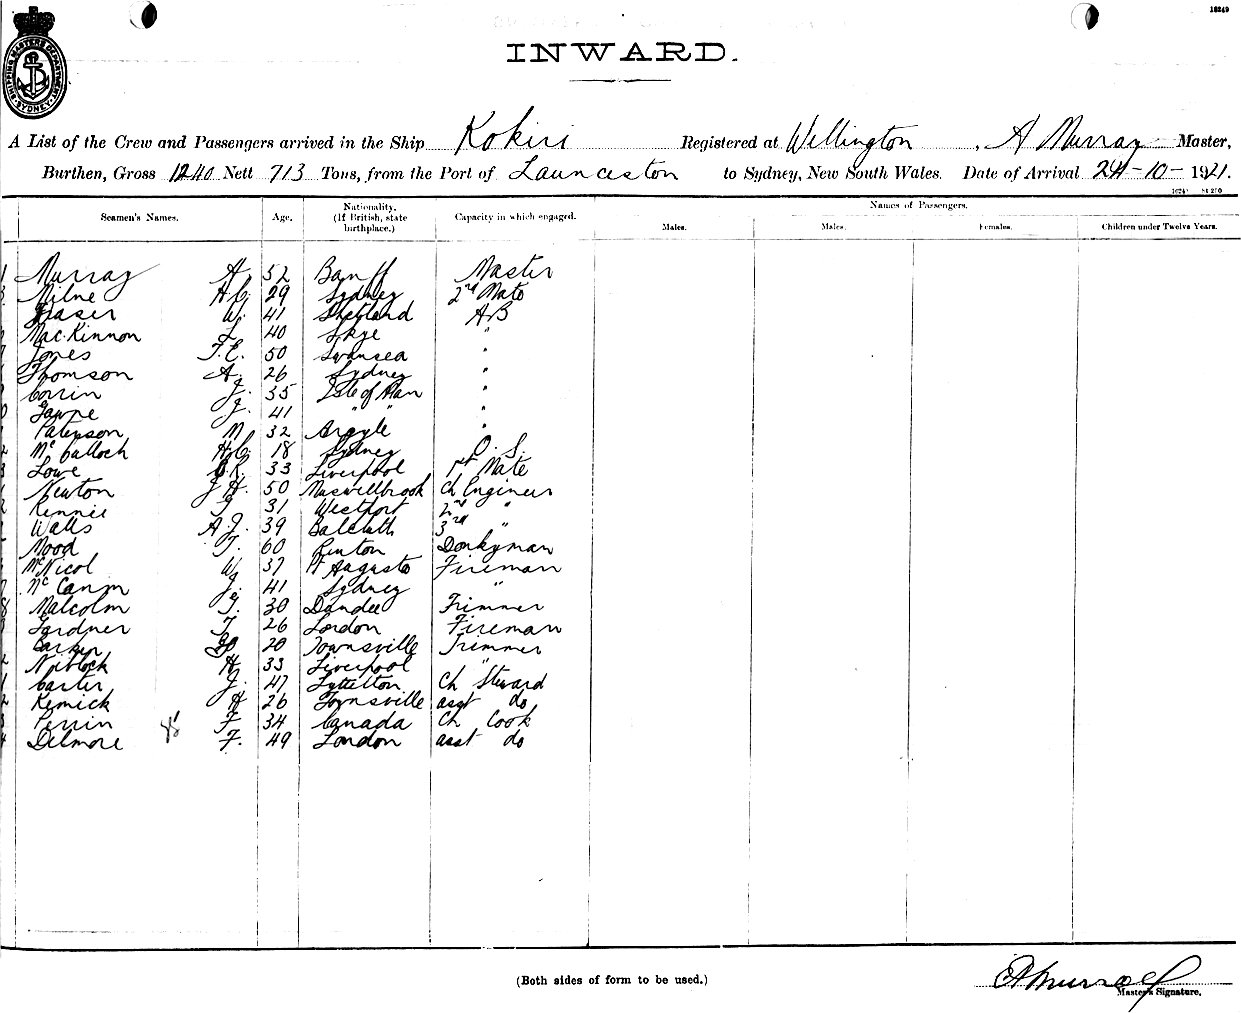 16249
SHIPPING MASTERS DEPARTMENT SYDNEY
INWARD.
A List of the Crew and Passengers arrived in the Ship Kokiri Registered at Wellington, A Murray Master,
Burthen, Gross 1240 Nett 713 Tons, from the Port of Launceston to Sydney, New South Wales. Date of Arrival 24-10-1921.
Seamen's Names. Age. Nationality. (If British, state birthplace.) Capacity in which engaged. Names of Passengers.
Males. Males. Females. Children under Twelve Years.
Murray A 52 Banff Master
Milne H.G. 29 Sydney 2nd Mate
Fraser W. 41 Shetland AB
MacKinnon L 40 Skye "
Jones T.E. 50 Swansea "
Thomson A. 26 Sydney "
Corrin J. 35 Isle of Man "
Gawne J. 41 " " "
Paterson M 32 Argyle "
McCulloch H.G. 18 Sydney O.S.
Lowe 33 Liverpool 1st Mate
Newton J H. 50 Muswellbrook Ch Engineer
Rennie 31 Westport 2nd "
Walls A.J. 39 Balclutha 3rd "
Mood T. 60 Renton Donkyman
McNicol W 37 Pt Augusta Fireman
McCann J. 41 Sydney "
Malcolm 30 Dundee Trimmer
Gardner T 26 London Fireman
Barker 20 Townsville Trimmer
Niblock H 33 Liverpool "
Carter J. 47 Lyttelton Ch Steward
Kemick H 26 Townsville asst do
Perrin F 34 Canada Ch Cook
Delmore F. 49 London asst do
(Both sides of form to be used.)
A Murray
Master's Signature.